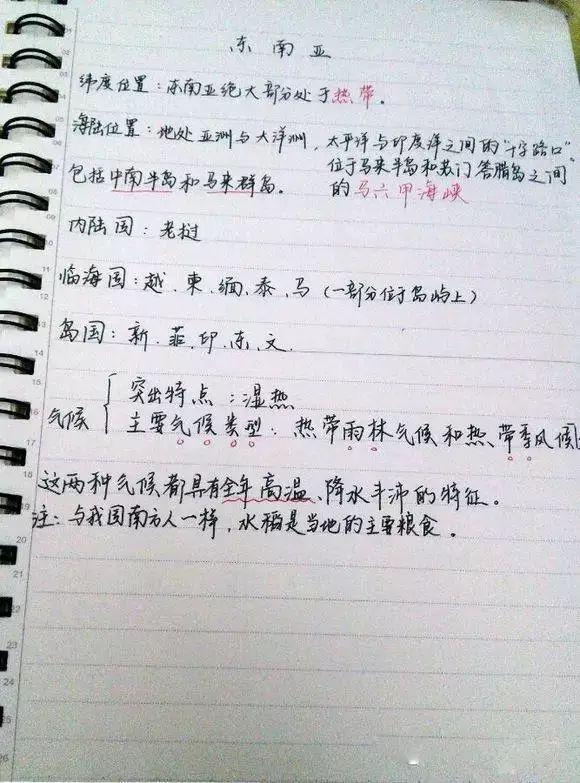 东南亚
纬度位置：东南亚绝大部分处于热带。
海陆位置：地处亚洲与大洋洲，太平洋与印度洋之间的“十字路口”
位于马来半岛和苏门答腊岛之间
包括中南半岛和马来群岛。 的马六甲海峡
内陆国：老挝
临海国：越、柬、缅、泰、马（一部分位于岛屿上）
岛国：新、菲、印、东、文、
气候
突出特点：湿热
主要气候类型：热带雨林气候和热带季风候
这两种气候都具有全年高温、降水丰沛的特征。
注：与我国南方人一样，水稻是当地的主要粮食。